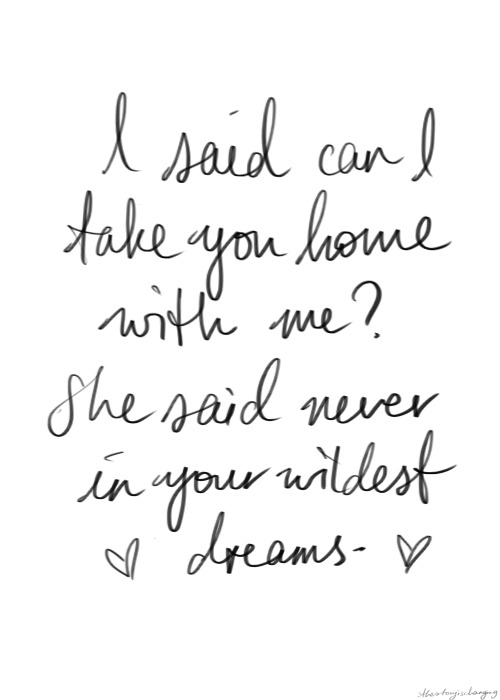 I said can I
take you home
with me?
She said never
in your wildest
dreams-